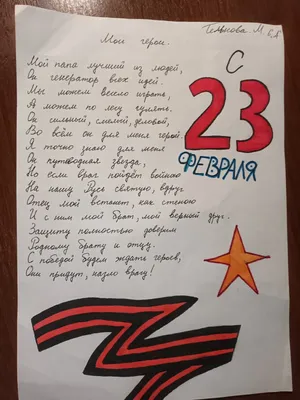 Тельнова. М 6"А"
Мои герои.
С
23
ФЕВРАЛЯ
Мой папа лучший из людей,
Он генератор всех идей.
Мы можем весело играть
А можем по лесу гулять.
Он сильный, смелый, деловой,
Во всём он для меня герой.
Я точно знаю для меня
Он путеводная звезда,
Но если враг пойдёт войною
На нашу Русь святую, вдруг
Отец мой встанет, как стеною
И с ним мой брат, мой верный друг.
Защиту полностью доверим
Родному брату и отцу.
С победой будем ждать героев,
Они придут, назло врагу!